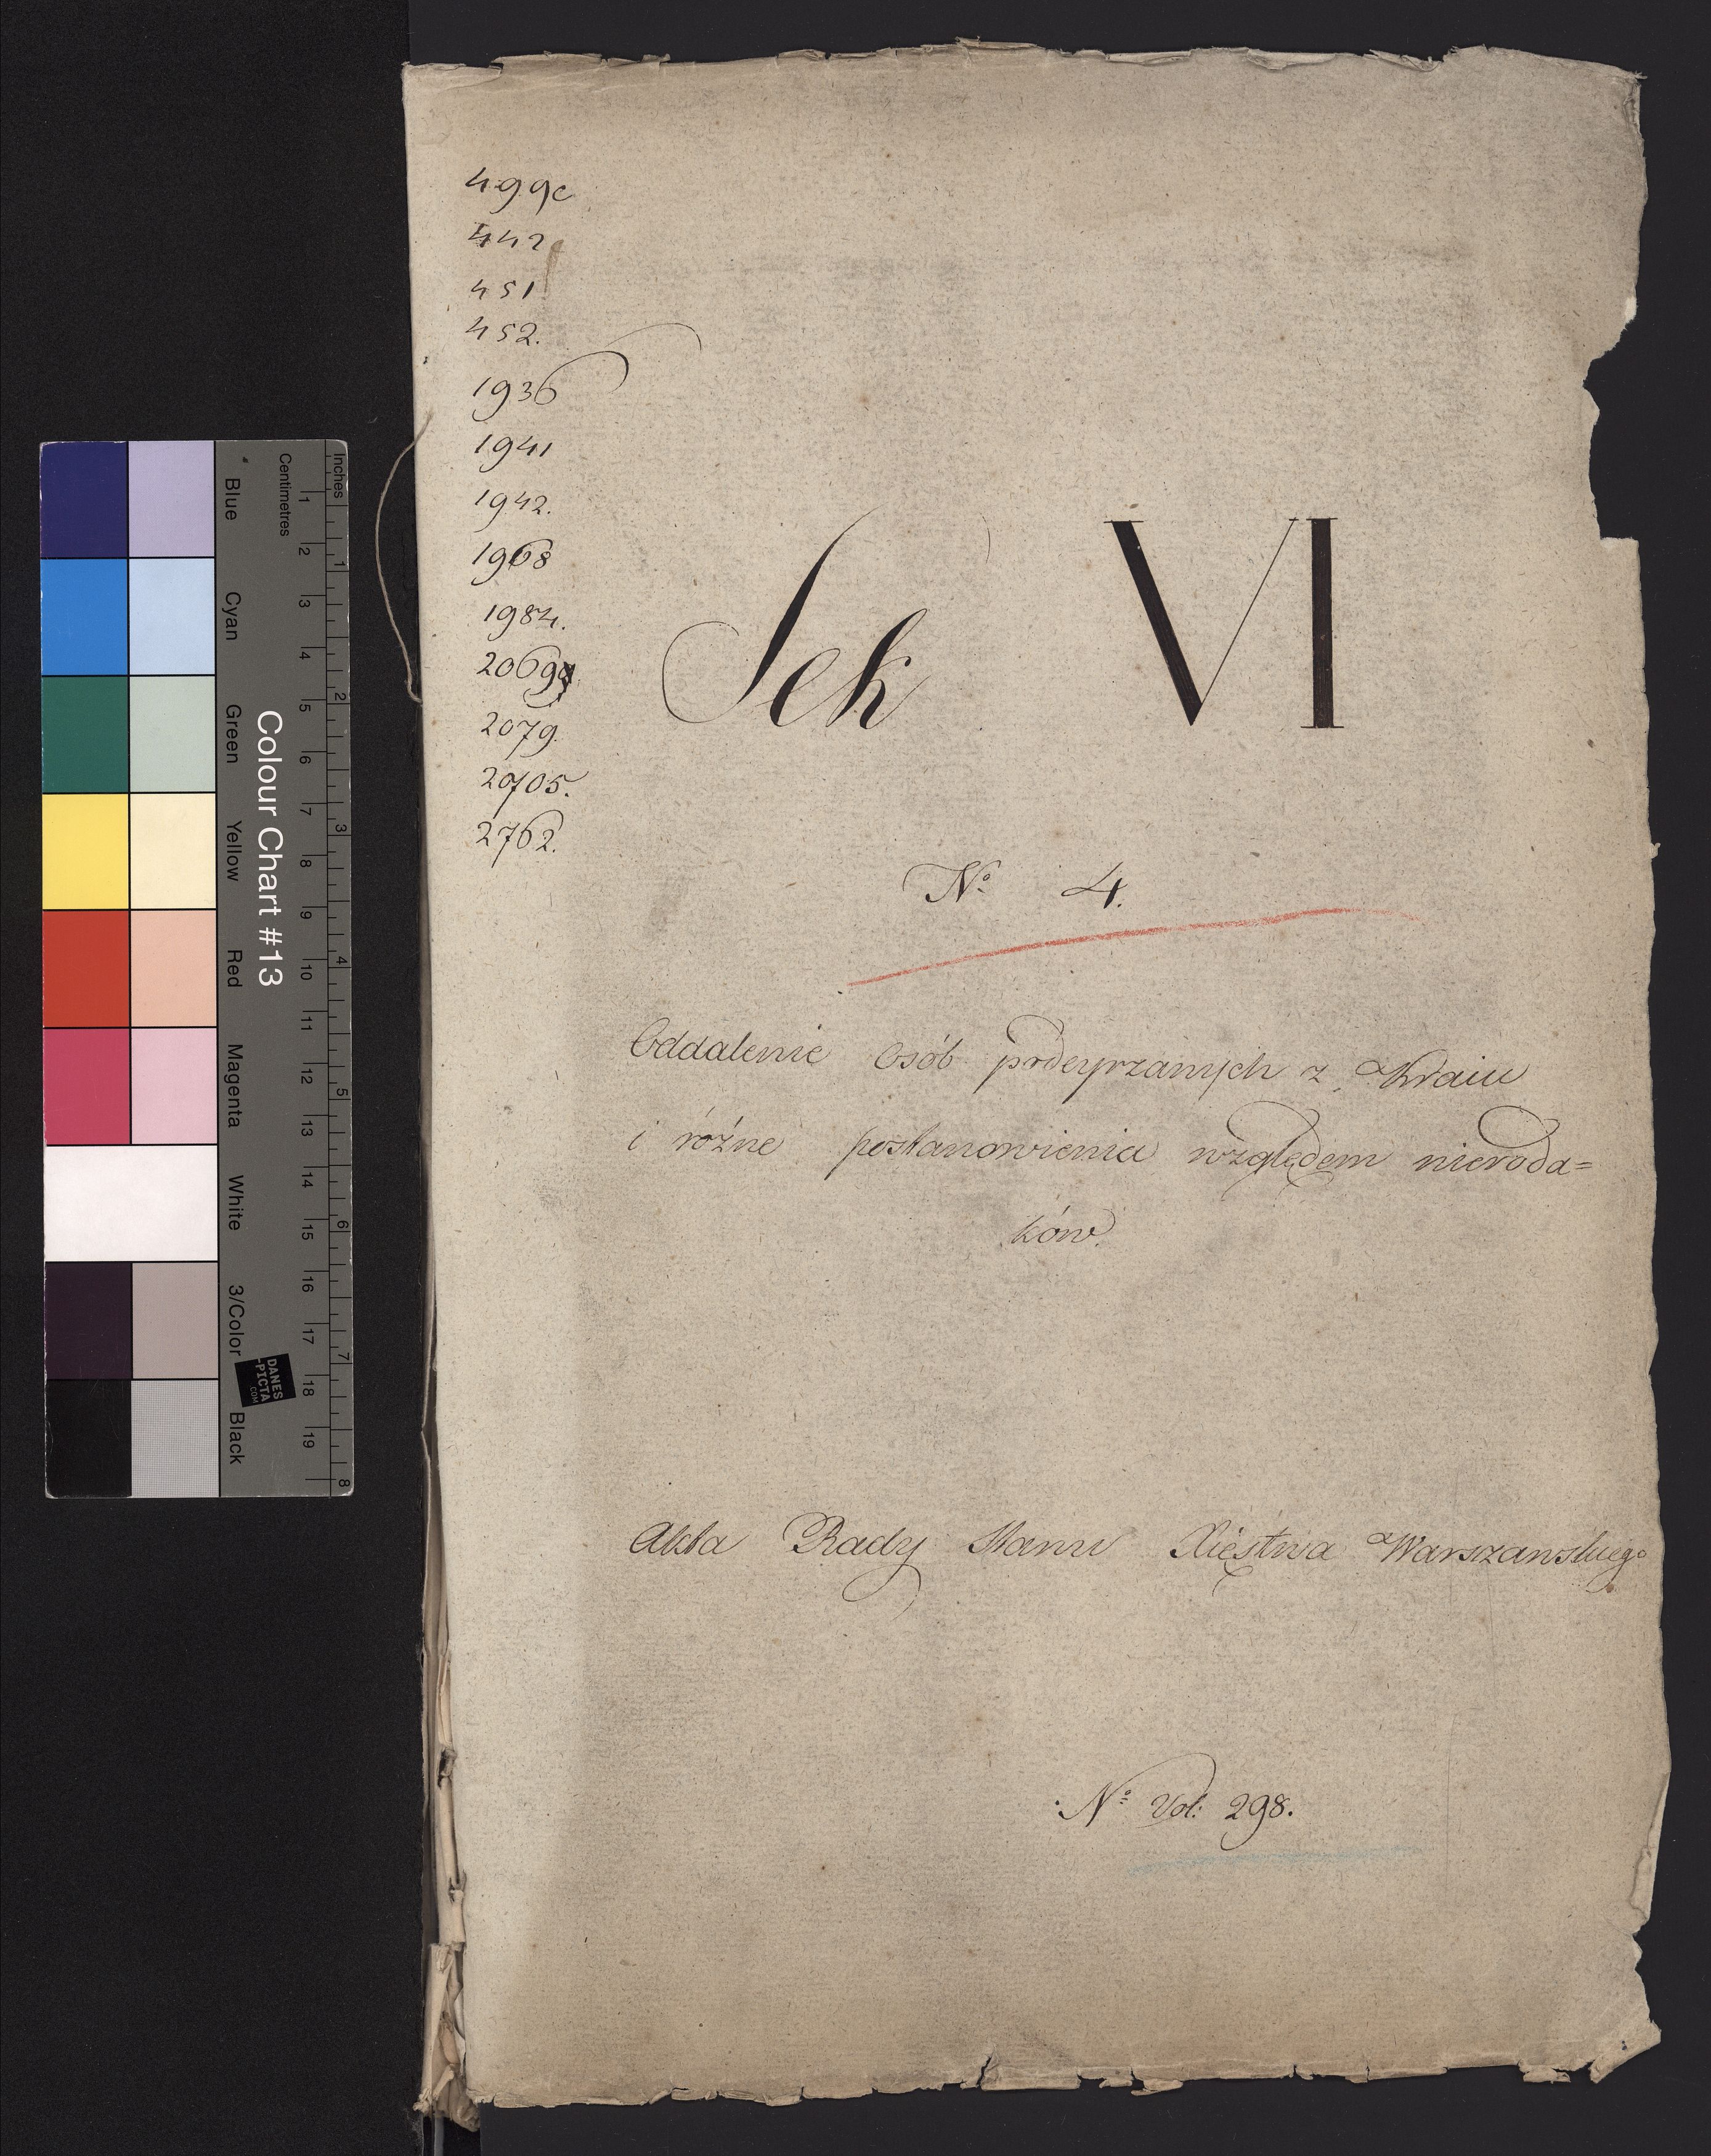 442
451
452.
1936
1941
1942.
1968
1984.
2079.
20705.
2762.
Sek VI
Nº 4.
Oddalenie Osób podeyrzanych z Kraiu
i różne postanowienia względem nieroda=
ków.
Akta Rady Stanu Xięstwa Warszawskiego
Nº Vol: 298.
Colour Chart #13
Blue Cyan Green Yellow Red Magenta White 3/Color Black
Centimetres 1 2 3 4 5 6 7 8 9 10 11 12 13 14 15 16 17 18 19
Inches 1 2 3 4 5 6 7 8
DANES
-PICTA
.COM